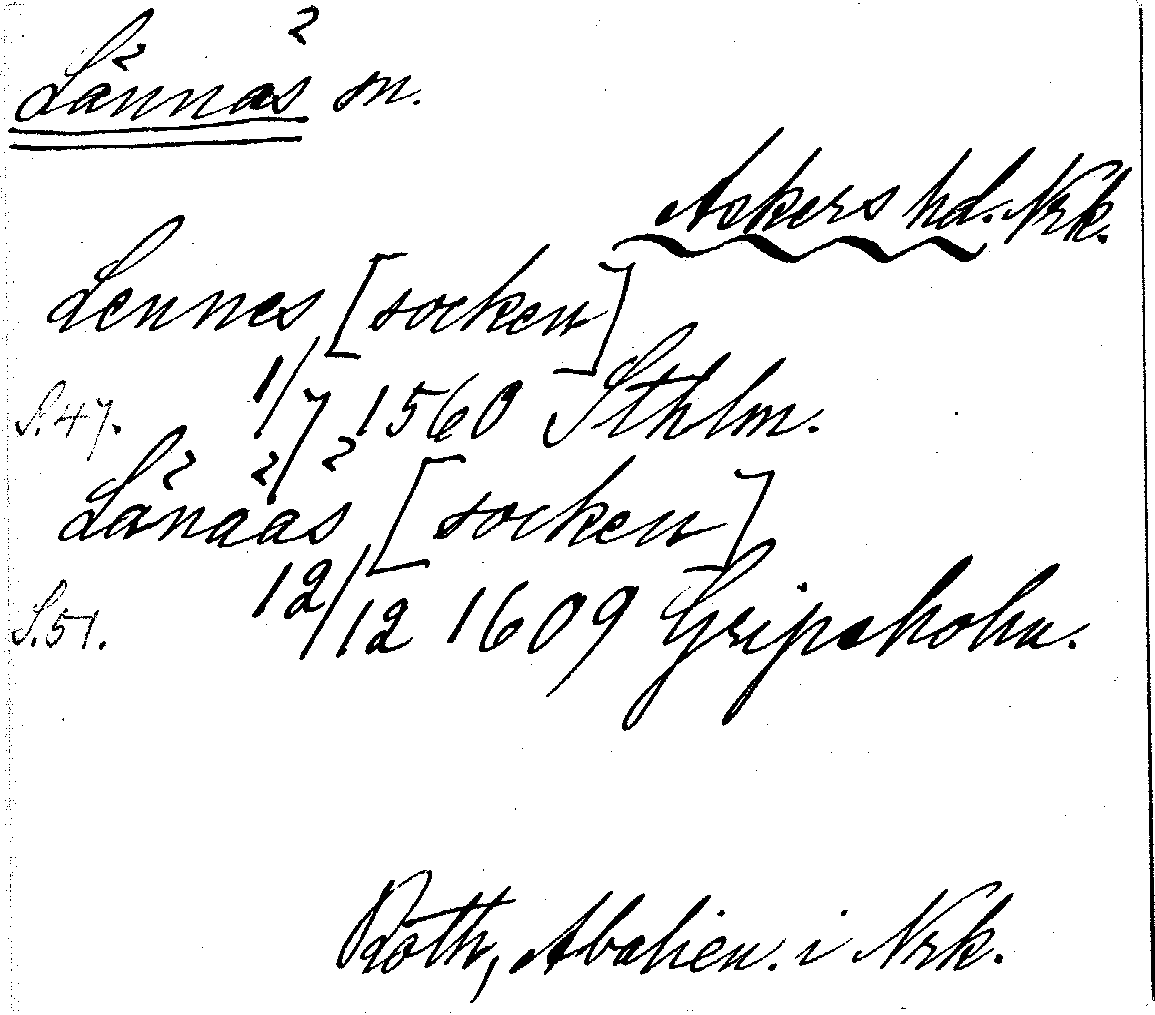 Lännäs sn.
Askers hd. Nrk.
Lennes [socken]
S.47. 1/7 1560 Sthlm.
Länääs [socken]
S.51. 12/12 1609 Gripsholm.
Roth, Abalien. i Nrk.